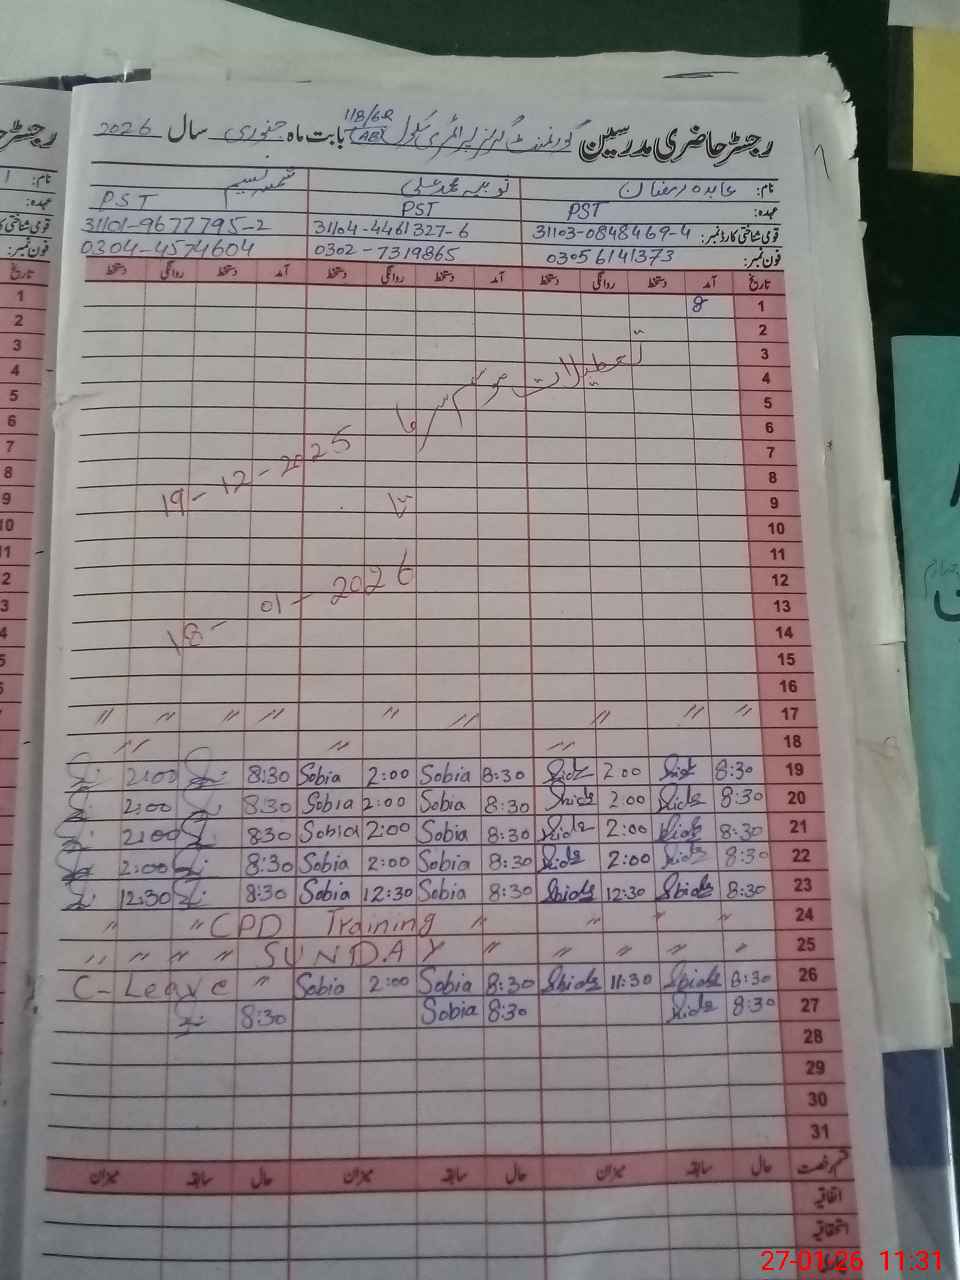 رجسٹر حاضری مدرسین گورنمنٹ گرلز پرائمری سکول 118/6R (AB) بابت ماہ جنوری سال 2026
نام: عابدہ رمضان ثوبیہ محمد علی ثمینہ نسیم
عہدہ: PST PST PST
قومی شناختی کارڈ نمبر: 31103-0848469-4 31104-4461327-6 31101-9677795-2
فون نمبر: 03056141373 0302-7319865 0304-4574604
تاریخ آمد دستخط روانگی دستخط آمد دستخط روانگی دستخط آمد دستخط روانگی دستخط
1 8
2
3
4
5
6
7
8
9
10
11
12
13
14
15
16
تعطیلات موسم سرما
19-12-2025
تا
18-01-2026
17 〃 〃 〃 〃 〃 〃 〃 〃 〃
18 〃 〃 〃
19 8:30 2:00 8:30 Sobia 2:00 Sobia 8:30 2:00
20 8:30 2:00 8:30 Sobia 2:00 Sobia 8:30 2:00
21 8:30 2:00 8:30 Sobia 2:00 Sobia 8:30 2:00
22 8:30 2:00 8:30 Sobia 2:00 Sobia 8:30 2:00
23 8:30 12:30 8:30 Sobia 12:30 Sobia 8:30 12:30
24 〃 〃 CPD Training 〃 〃 〃 〃
25 〃 〃 〃 〃 SUNDAY 〃 〃 〃 〃
26 8:30 11:30 8:30 Sobia 2:00 Sobia 〃 C-Leave
27 8:30 8:30 Sobia 8:30
28
29
30
31
حال سابقہ میزان حال سابقہ میزان حال سابقہ میزان
اتفاقیہ
استحقاقیہ
رجسٹر
نام:
عہدہ:
فون نمبر:
تاریخ
1
2
3
4
5
6
7
8
9
27-01-26 11:31